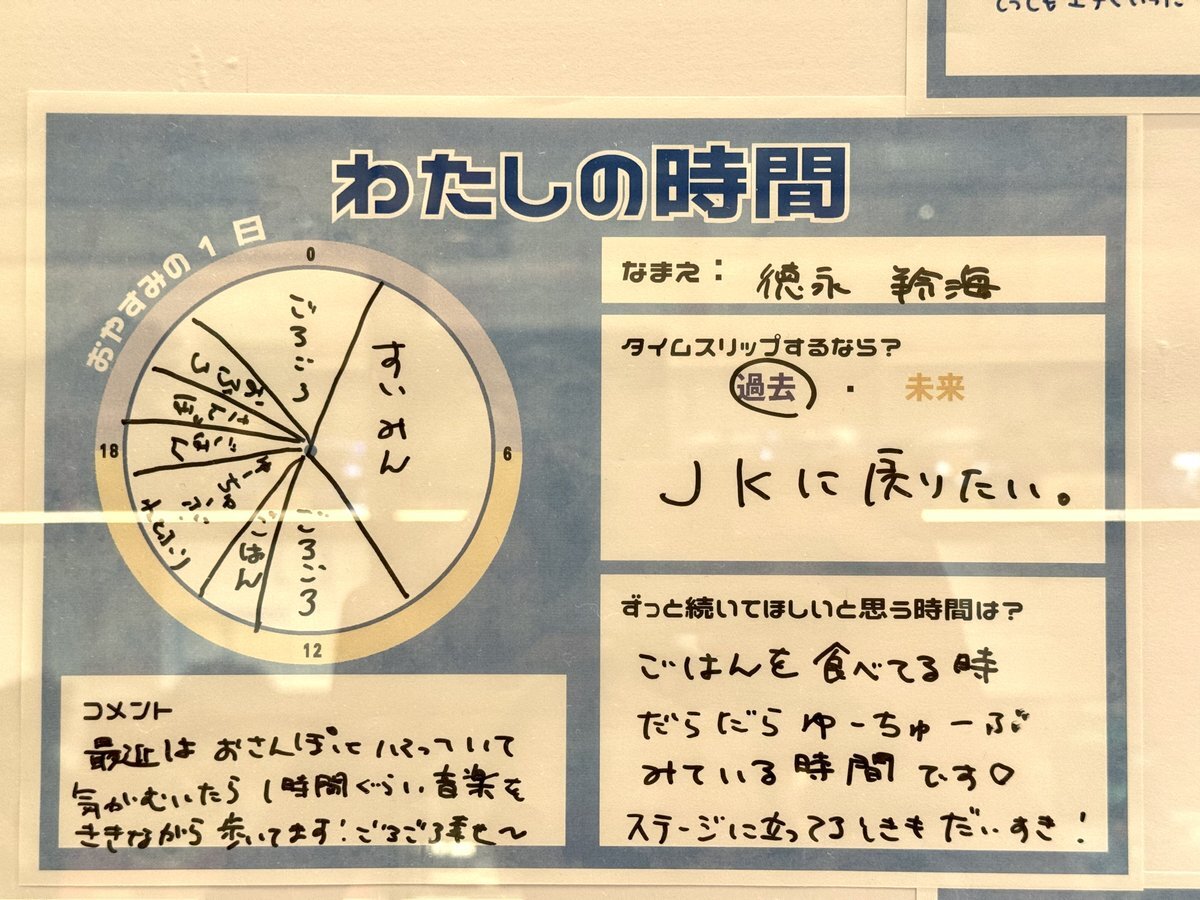 わたしの時間
おやすみの1日
0
6
12
18
すいみん
ごろごろ
ごはん
ゆーちゅーぶ
ごはん
おさんぽ
おふろ
ごろごろ
なまえ： 徳永 羚海
タイムスリップするなら？
過去 ・ 未来
JKに戻りたい。
ずっと続いてほしいと思う時間は？
ごはんを食べてる時
だらだらゆーちゅーぶ
みている時間です♡
ステージに立ってるときもだいすき！
コメント
最近はおさんぽにハマっていて
気がむいたら1時間ぐらい音楽を
ききながら歩いてます！ごろごろ幸せ〜